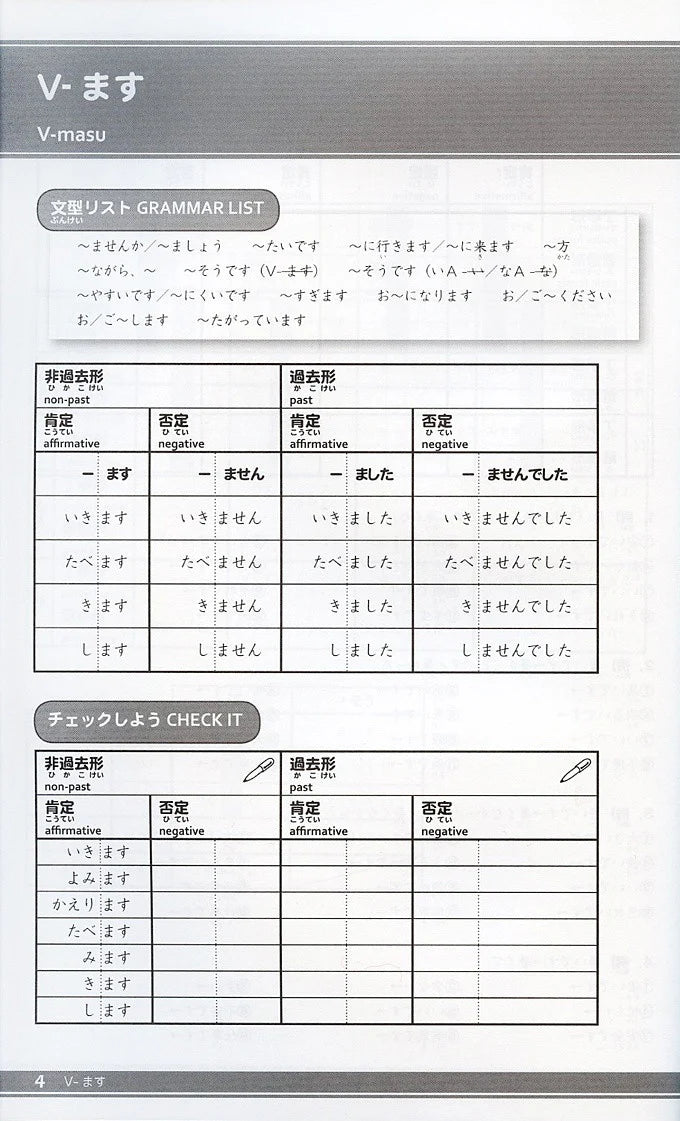 V- ます
V-masu
文型リスト GRAMMAR LIST
ぶんけい
〜ませんか／〜ましょう　〜たいです　〜に行きます／〜に来ます　〜方
い　き　かた
〜ながら、〜　〜そうです（V-ます）　〜そうです（いA -い／なA -な）
〜やすいです／〜にくいです　〜すぎます　お〜になります　お／ご〜ください
お／ご〜します　〜たがっています
非過去形　過去形
ひかこけい　かこけい
non-past　past
肯定　否定　肯定　否定
こうてい　ひてい　こうてい　ひてい
affirmative　negative　affirmative　negative
－ ます　－ ません　－ ました　－ ませんでした
いき ます　いき ません　いき ました　いき ませんでした
たべ ます　たべ ません　たべ ました　たべ ませんでした
き ます　き ません　き ました　き ませんでした
し ます　し ません　し ました　し ませんでした
チェックしよう CHECK IT
非過去形　過去形
ひかこけい　かこけい
non-past　past
肯定　否定　肯定　否定
こうてい　ひてい　こうてい　ひてい
affirmative　negative　affirmative　negative
いき ます
よみ ます
かえり ます
たべ ます
み ます
き ます
し ます
4　V- ます